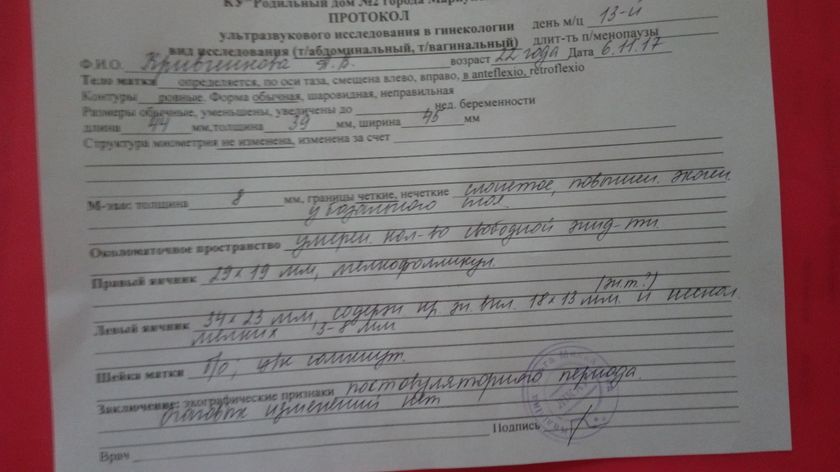 КУ "Родильный дом №2 города Мариуп
ПРОТОКОЛ
ультразвукового исследования в гинекологии день м/ц 13-й
вид исследования (т/абдоминальный, т/вагинальный) длит-ть п/менопаузы
Ф.И.О. возраст 22 года Дата 6.11.17
Тело матки определяется, по оси таза, смещена влево, вправо, в anteflexio, retroflexio
Контуры ровные. Форма обычная, шаровидная, неправильная
Размеры обычные, уменьшены, увеличены до нед. беременности
длина 44 мм, толщина 39 мм, ширина 45 мм
Структура миометрия не изменена, изменена за счет
М-эхо: толщина 8 мм, границы четкие, нечеткие слоистое, повышен. эхоген
у базального слоя
Околоматочное пространство умерен. кол-во свободной жид-ти
Правый яичник 29х19 мм, мелкофолликул.
(жт?)
Левый яичник 34х23 мм, содержи вкл. 18х13 мм. и нескол
мелких 3-8 мм
Шейка матки б/о; ц/к сомкнут.
Заключение: эхографические признаки постовуляторного периода.
Очаговых изменений нет
Врач Подпись